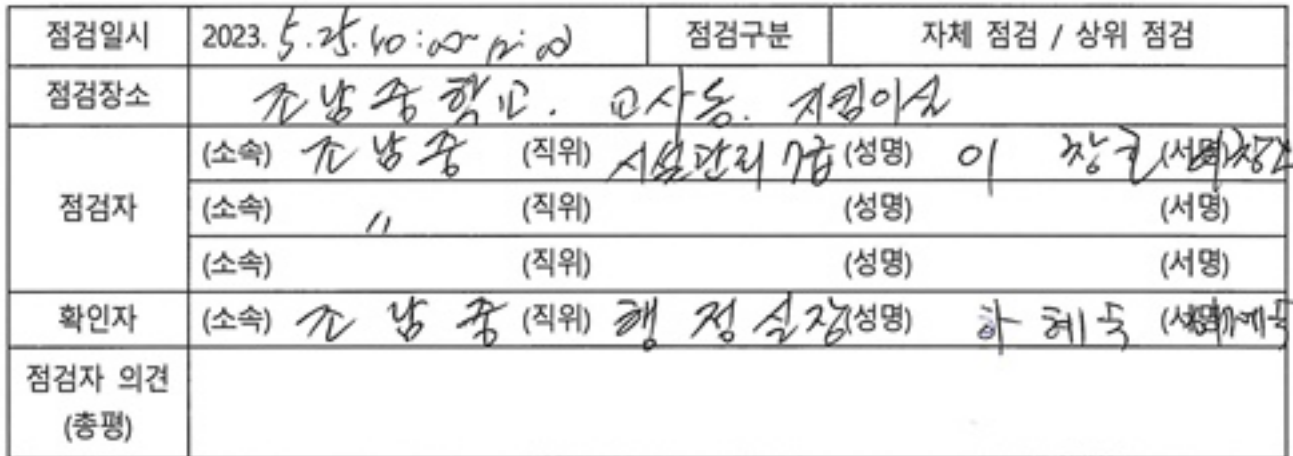 점검일시 2023. 5. 25. 10:00~12:00 점검구분 자체 점검 / 상위 점검
점검장소 조남중학교. 교사동. 지킴이실
(소속) 조남중 (직위) 시설관리 7급 (성명) 이창근 (서명)
점검자 (소속) 〃 (직위) (성명) (서명)
(소속) (직위) (성명) (서명)
확인자 (소속) 조남중 (직위) 행정실장 (성명) 하혜숙 (서명)
점검자 의견
(총평)